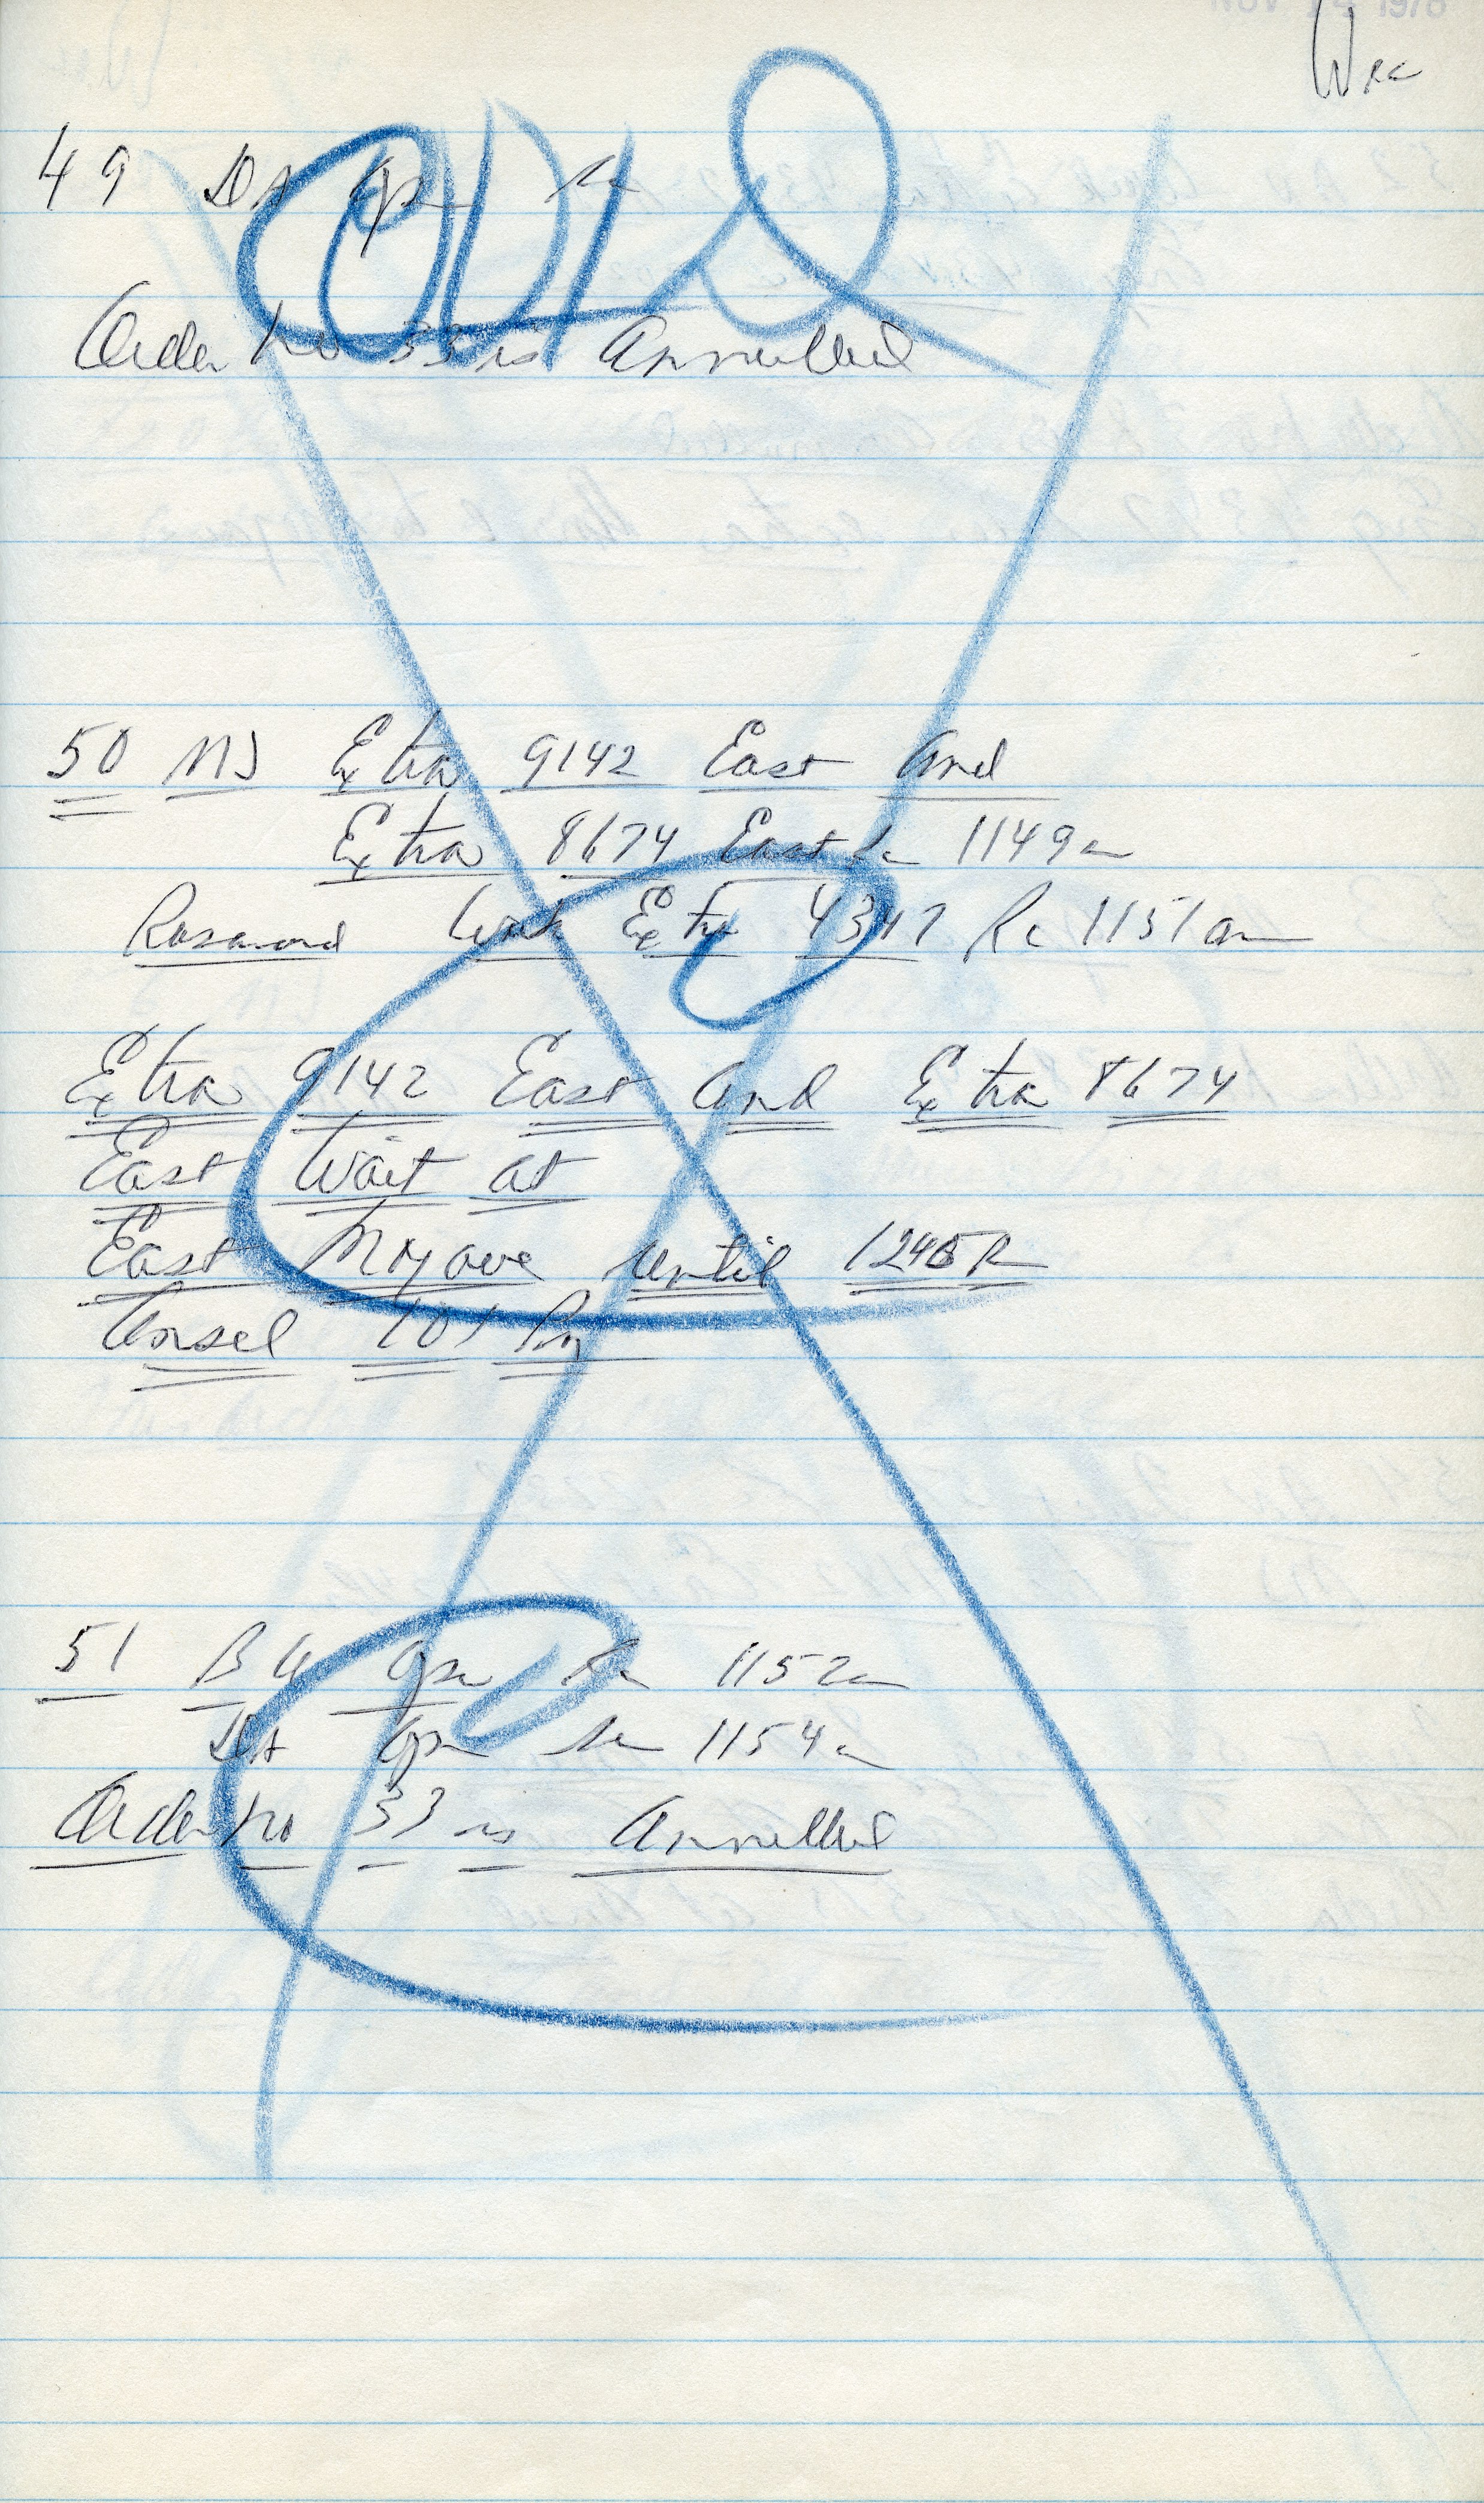 WRC
49 DA Opr
Order No 33 is Annulled
50 MJ Extra 9142 East and
Extra 8674 East 1149a
Rosamond Work Extra 4347 Rc 1151am
Extra 9142 East and Extra 8674
East Wait at
East Mojave until 1245P
Ansel 101 Pm
51 BU Opr 1152a
DA Opr 1154a
Order No 33 is Annulled